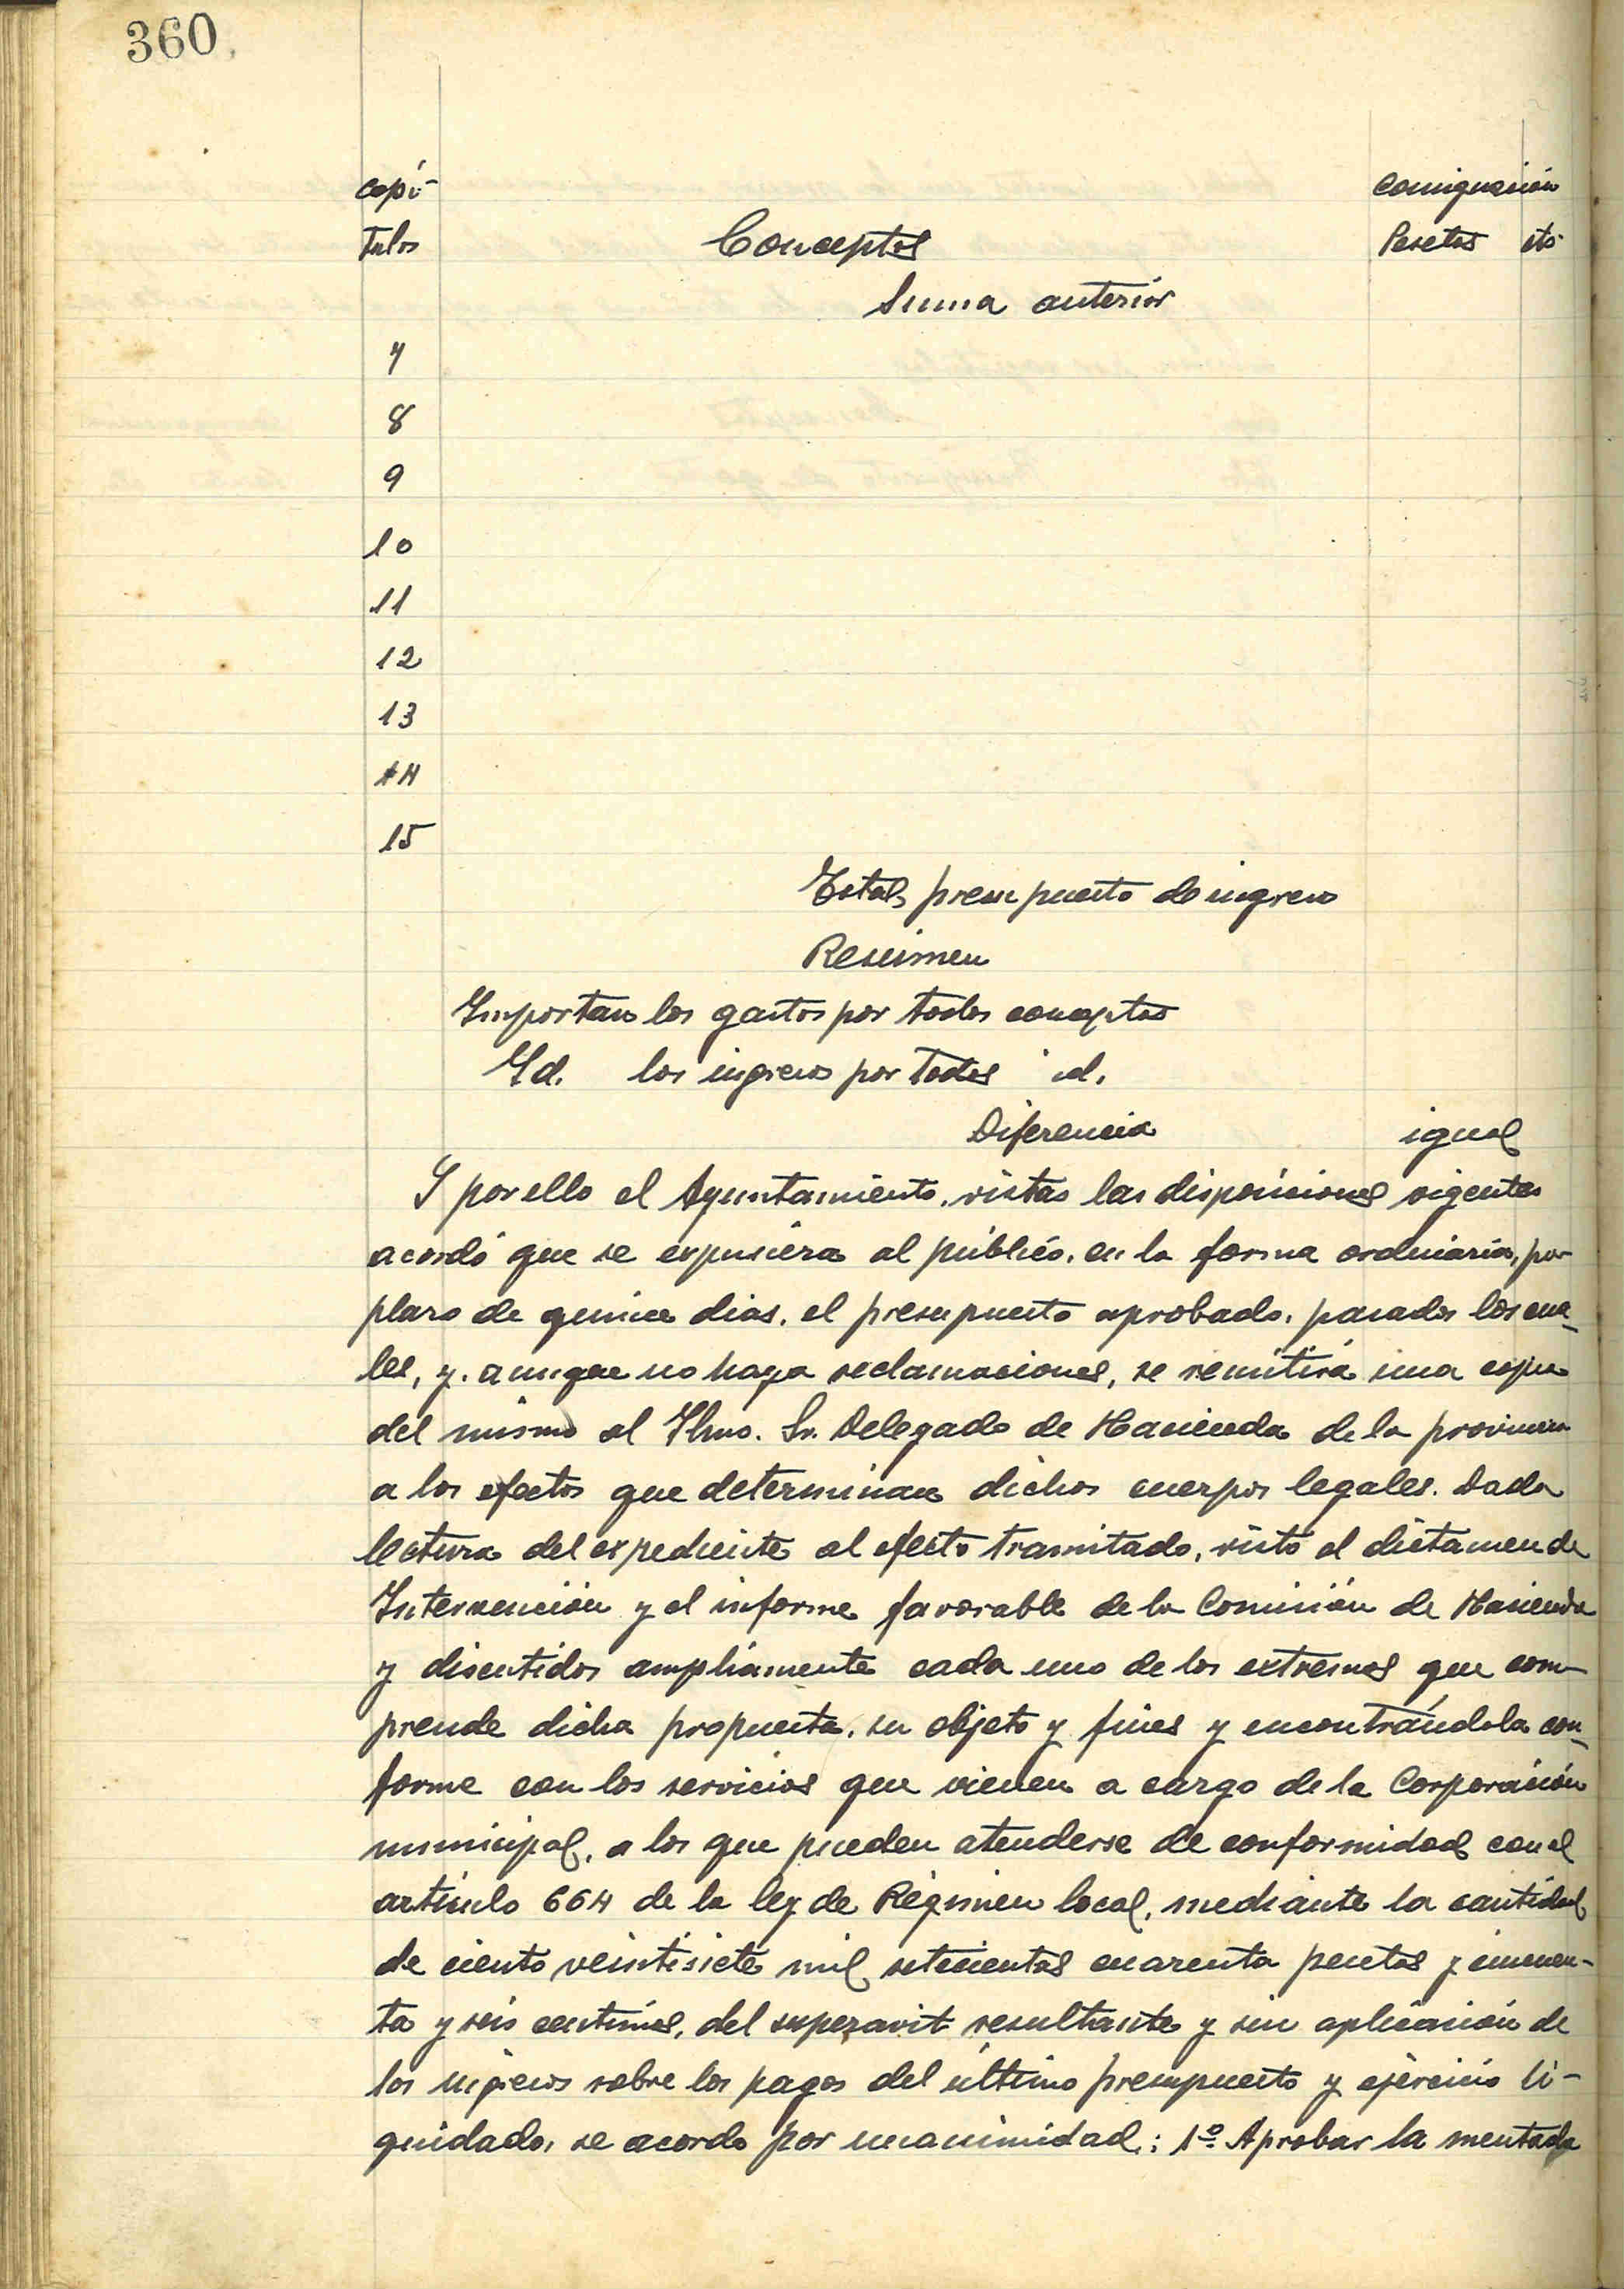 360
capí- consignación
tulos Conceptos Pesetas cts
Suma anterior
7
8
9
10
11
12
13
14
15
Total presupuesto de ingreso
Resúmen
Importan los gastos por todos conceptos
Id. los ingresos por todos id.
Diferencia igual
Y por ello el Ayuntamiento, vistas las disposiciones vigentes
acordó que se expusiera al público, en la forma ordinaria, por
plazo de quince dias, el presupuesto aprobado, pasados los cua-
les, y, aunque no haya reclamaciones, se remitirá una copia
del mismo al Ilmo. Sr. Delegado de Hacienda de la provincia
a los efectos que determinan dichos cuerpos legales. Dada
lectura del expediente al efecto tramitado, visto el dictamen de
Intervención y el informe favorable de la Comisión de Hacienda
y discutidos ampliamente cada uno de los extremos que com-
prende dicha propuesta, su objeto y fines y encontrándola con-
forme con los servicios que vienen a cargo de la Corporación
municipal, a los que pueden atenderse de conformidad con el
artículo 664 de la ley de Régimen local, mediante la cantidad
de ciento veintisiete mil setecientas cuarenta pesetas y cincuen-
ta y seis centimos, del superavit resultante y sin aplicación de
los ingresos sobre los pagos del último presupuesto y ejercicio li-
quidado, se acordo por unanimidad: 1º Aprobar la mentada